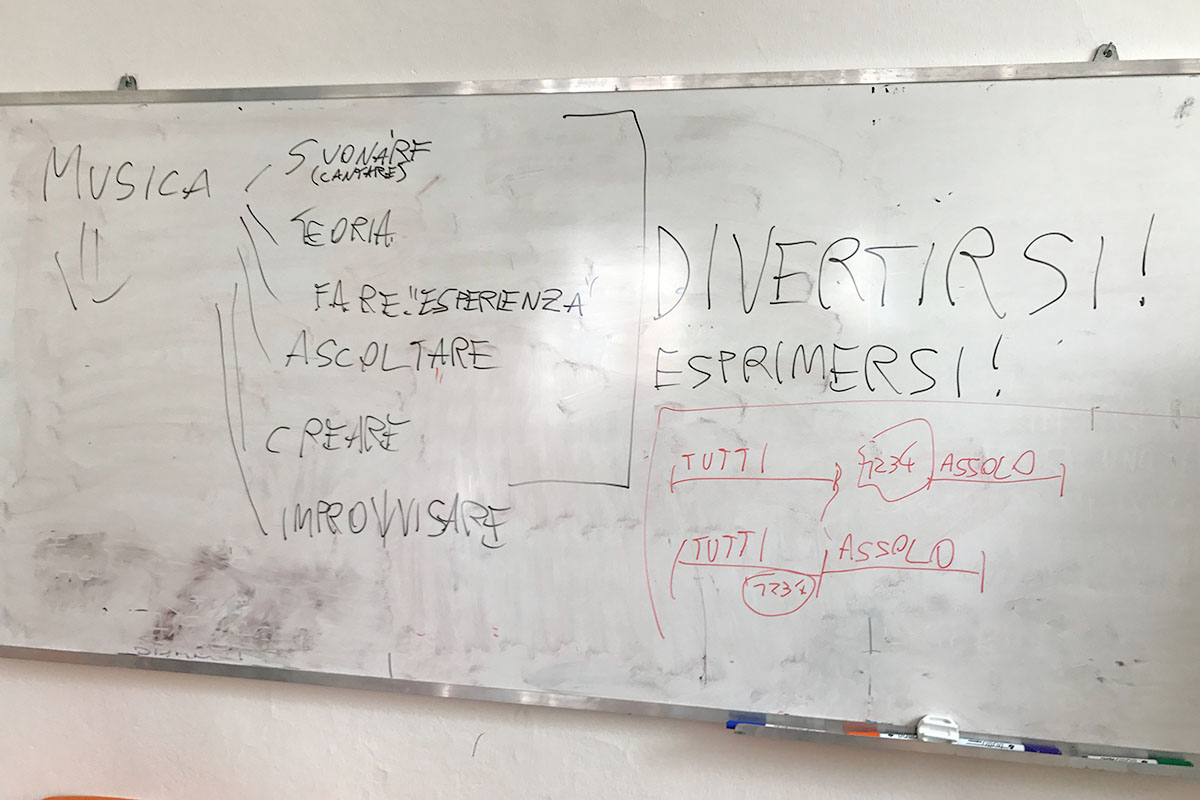 MUSICA
SUONARE
(CANTARE)
TEORIA
FARE "ESPERIENZA"
ASCOLTARE
CREARE
IMPROVVISARE
DIVERTIRSI!
ESPRIMERSI!
TUTTI 1234 ASSOLO
TUTTI ASSOLO
1234